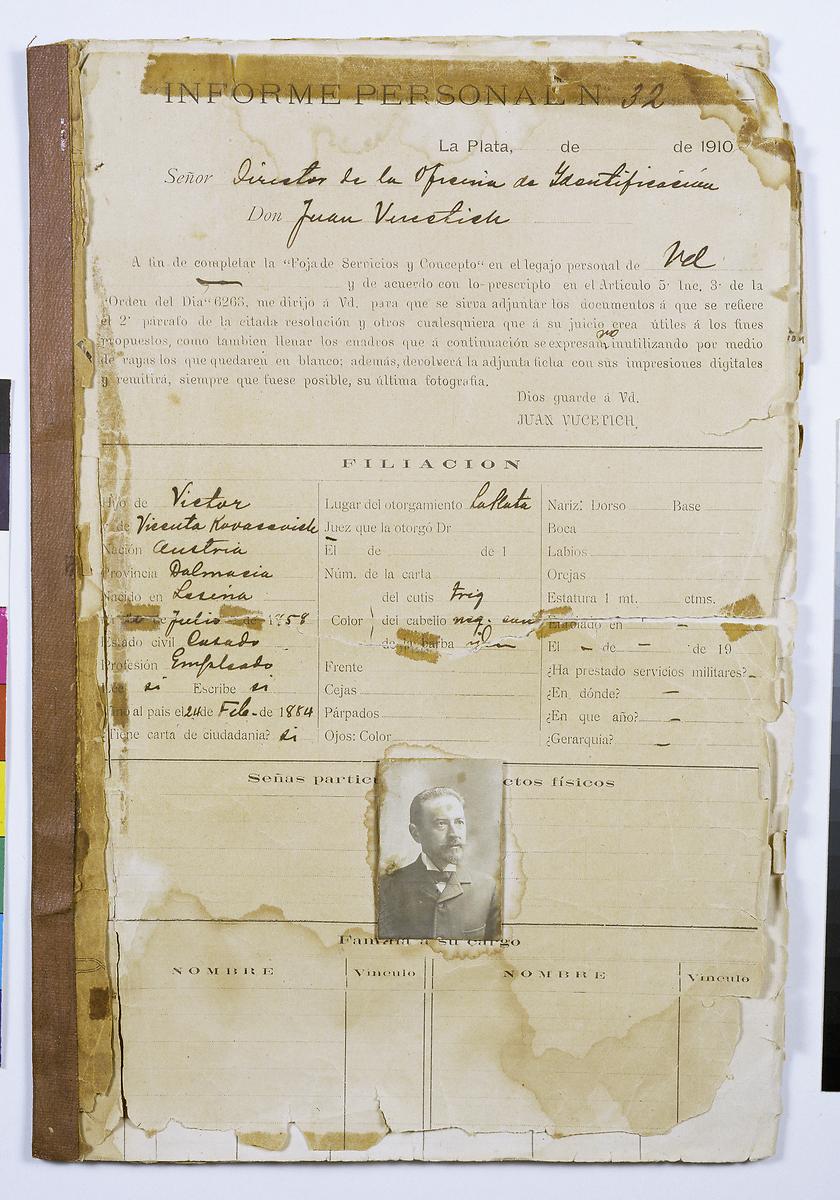 INFORME PERSONAL N. 32
La Plata, de de 1910
Señor Director de la Oficina de Identificación
Don Juan Vucetich
A fin de completar la "Foja de Servicios y Concepto" en el legajo personal de Vd
y de acuerdo con lo prescripto en el Artículo 5º Inc. 3º de la
"Orden del Dia" 6268, me dirijo á Vd. para que se sirva adjuntar los documentos á que se refiere
el 2º párrafo de la citada resolución y otros cualesquiera que á su juicio crea útiles á los fines
propuestos, como tambien llenar los cuadros que á continuación se expresan, inutilizando por medio
de rayas los que quedaren en blanco; además, devolverá la adjunta ficha con sus impresiones digitales
y remitirá, siempre que fuese posible, su última fotografía.
Dios guarde á Vd.
JUAN VUCETICH.
FILIACION
Hijo de Victor
y de Vicenta Kovacevich
Nación Austria
Provincia Dalmacia
Nacido en Lesina
20 de Julio de 1858
Estado civil Casado
Profesión Empleado
Lée si Escribe si
Vino al país el 24 de Feb. de 1884
¿Tiene carta de ciudadanía? si
Lugar del otorgamiento La Plata
Juez que la otorgó Dr
El de de 1
Núm. de la carta
Color del cutis trig
del cabello neg.
de la barba
Frente
Cejas
Párpados
Ojos: Color
Nariz: Dorso Base
Boca
Labios
Orejas
Estatura 1 mt. ctms.
Enrolado en –
El – de – de 19
¿Ha prestado servicios militares? –
¿En dónde? –
¿En que año? –
¿Gerarquia? –
Señas partic ctos físicos
Familia a su cargo
NOMBRE Vinculo NOMBRE Vinculo